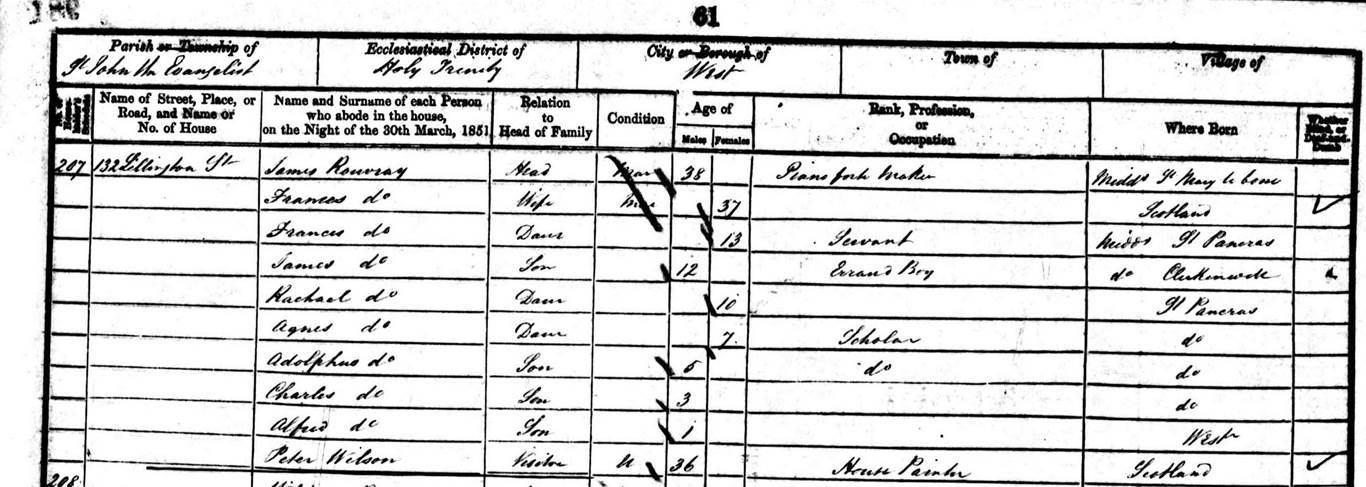 61
Parish or Township of Ecclesiastical District of City or Borough of Town of Village of
St John the Evangelist Holy Trinity West
Name of Street, Place, or Road, and Name or No. of House Name and Surname of each Person who abode in the house, on the Night of the 30th March, 1851 Relation to Head of Family Condition Age of Males Females Rank, Profession, or Occupation Where Born Whether Blind, or Deaf-and-Dumb
207 132 Lillington St James Rouvray Head Mar 38 Piano forte Maker Middx St Mary le bone
Frances do Wife Mar 37 Scotland
Frances do Daur 13 Servant Middx St Pancras
James do Son 12 Errand Boy do Clerkenwell
Rachael do Daur 10 St Pancras
Agnes do Daur 7 Scholar do
Adolphus do Son 5 do do
Charles do Son 3 do
Alfred do Son 1 West
Peter Wilson Visitor U 36 House Painter Scotland
208